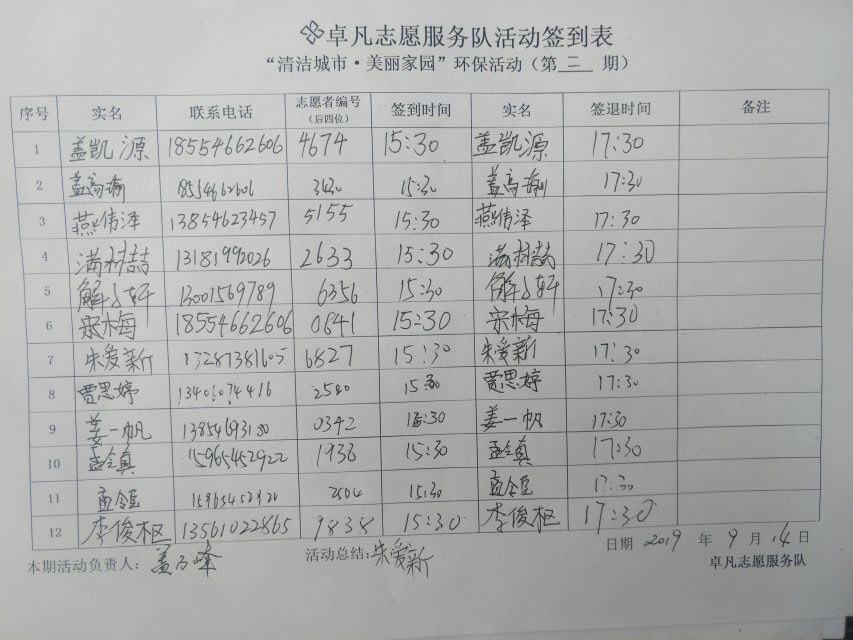 卓凡志愿服务队活动签到表
“清洁城市·美丽家园”环保活动（第 三 期）
序号 实名 联系电话 志愿者编号（后四位） 签到时间 实名 签退时间 备注
1 盖凯源 18554662606 4674 15:30 盖凯源 17:30
2 盖高瑜 18554662606 3430 15:30 盖高瑜 17:30
3 燕伟泽 13854623457 5155 15:30 燕伟泽 17:30
4 满树喆 13181992026 2633 15:30 满树喆 17:30
5 解 轩 13001569789 6356 15:30 解 轩 17:30
6 宋梅 18554662606 0641 15:30 宋梅 17:30
7 朱爱新 13287381605 6827 15:30 朱爱新 17:30
8 贾思婷 13406074416 2540 15:30 贾思婷 17:30
9 姜一帆 13854693180 0342 15:30 姜一帆 17:30
10 孟令真 15965452922 1938 15:30 孟令真 17:30
11 孟令 2504 15:30 孟令 17:30
12 李俊枢 13561022865 9838 15:30 李俊枢 17:30
日期 2019 年 9 月 14 日
本期活动负责人： 盖 峰 活动总结：朱爱新 卓凡志愿服务队